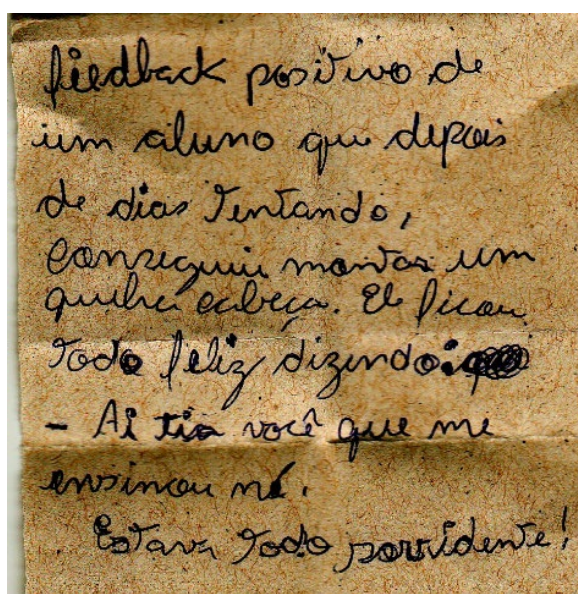 feedback positivo de
um aluno que depois
de dias tentando,
conseguiu montar um
quebra cabeça. Ele ficou
todo feliz dizendo:
- Ai tia você que me
ensinou né.
Estava todo sorridente!